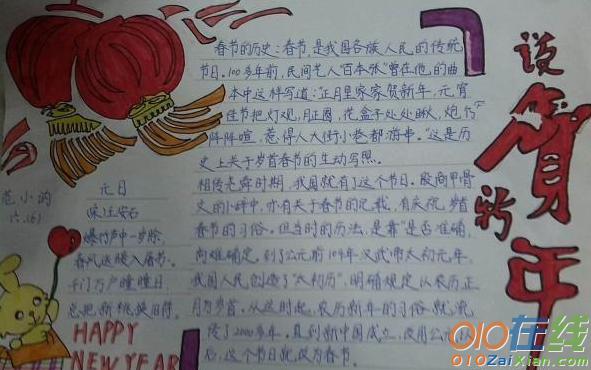 春节的历史：春节，是我国各族人民的传统
节日。100多年前，民间艺人"百本张"曾在他的曲
本中这样写道："正月里家家贺新年，元宵
佳节把灯观，月正圆，花盒子处处瞅，炮竹
阵阵喧，惹得人大街小巷都游串。"这是历
史上关于岁首春节的生动写照。
相传尧舜时期，我国就有了这个节日。殷商甲骨
文的小碎中，亦有关于春节的记载，有庆祝岁首
春节的习俗。但当时的历法，是靠"是否准确，
尚难确定。到了公元前104年汉武帝太初元年，
我国人民创造了"太初历"，明确规定以农历正
月为岁首。从这时起，农历新年的习俗就流
传了2000多年。直到新中国成立，使用公元
后，这个节日就改为春节。
范小
六.(6)
元日
宋.王安石
爆竹声中一岁除，
春风送暖入屠苏。
千门万户曈曈日，
总把新桃换旧符。
HAPPY
NEW YEAR
说
贺新
年
010在线
010ZaiXian.com